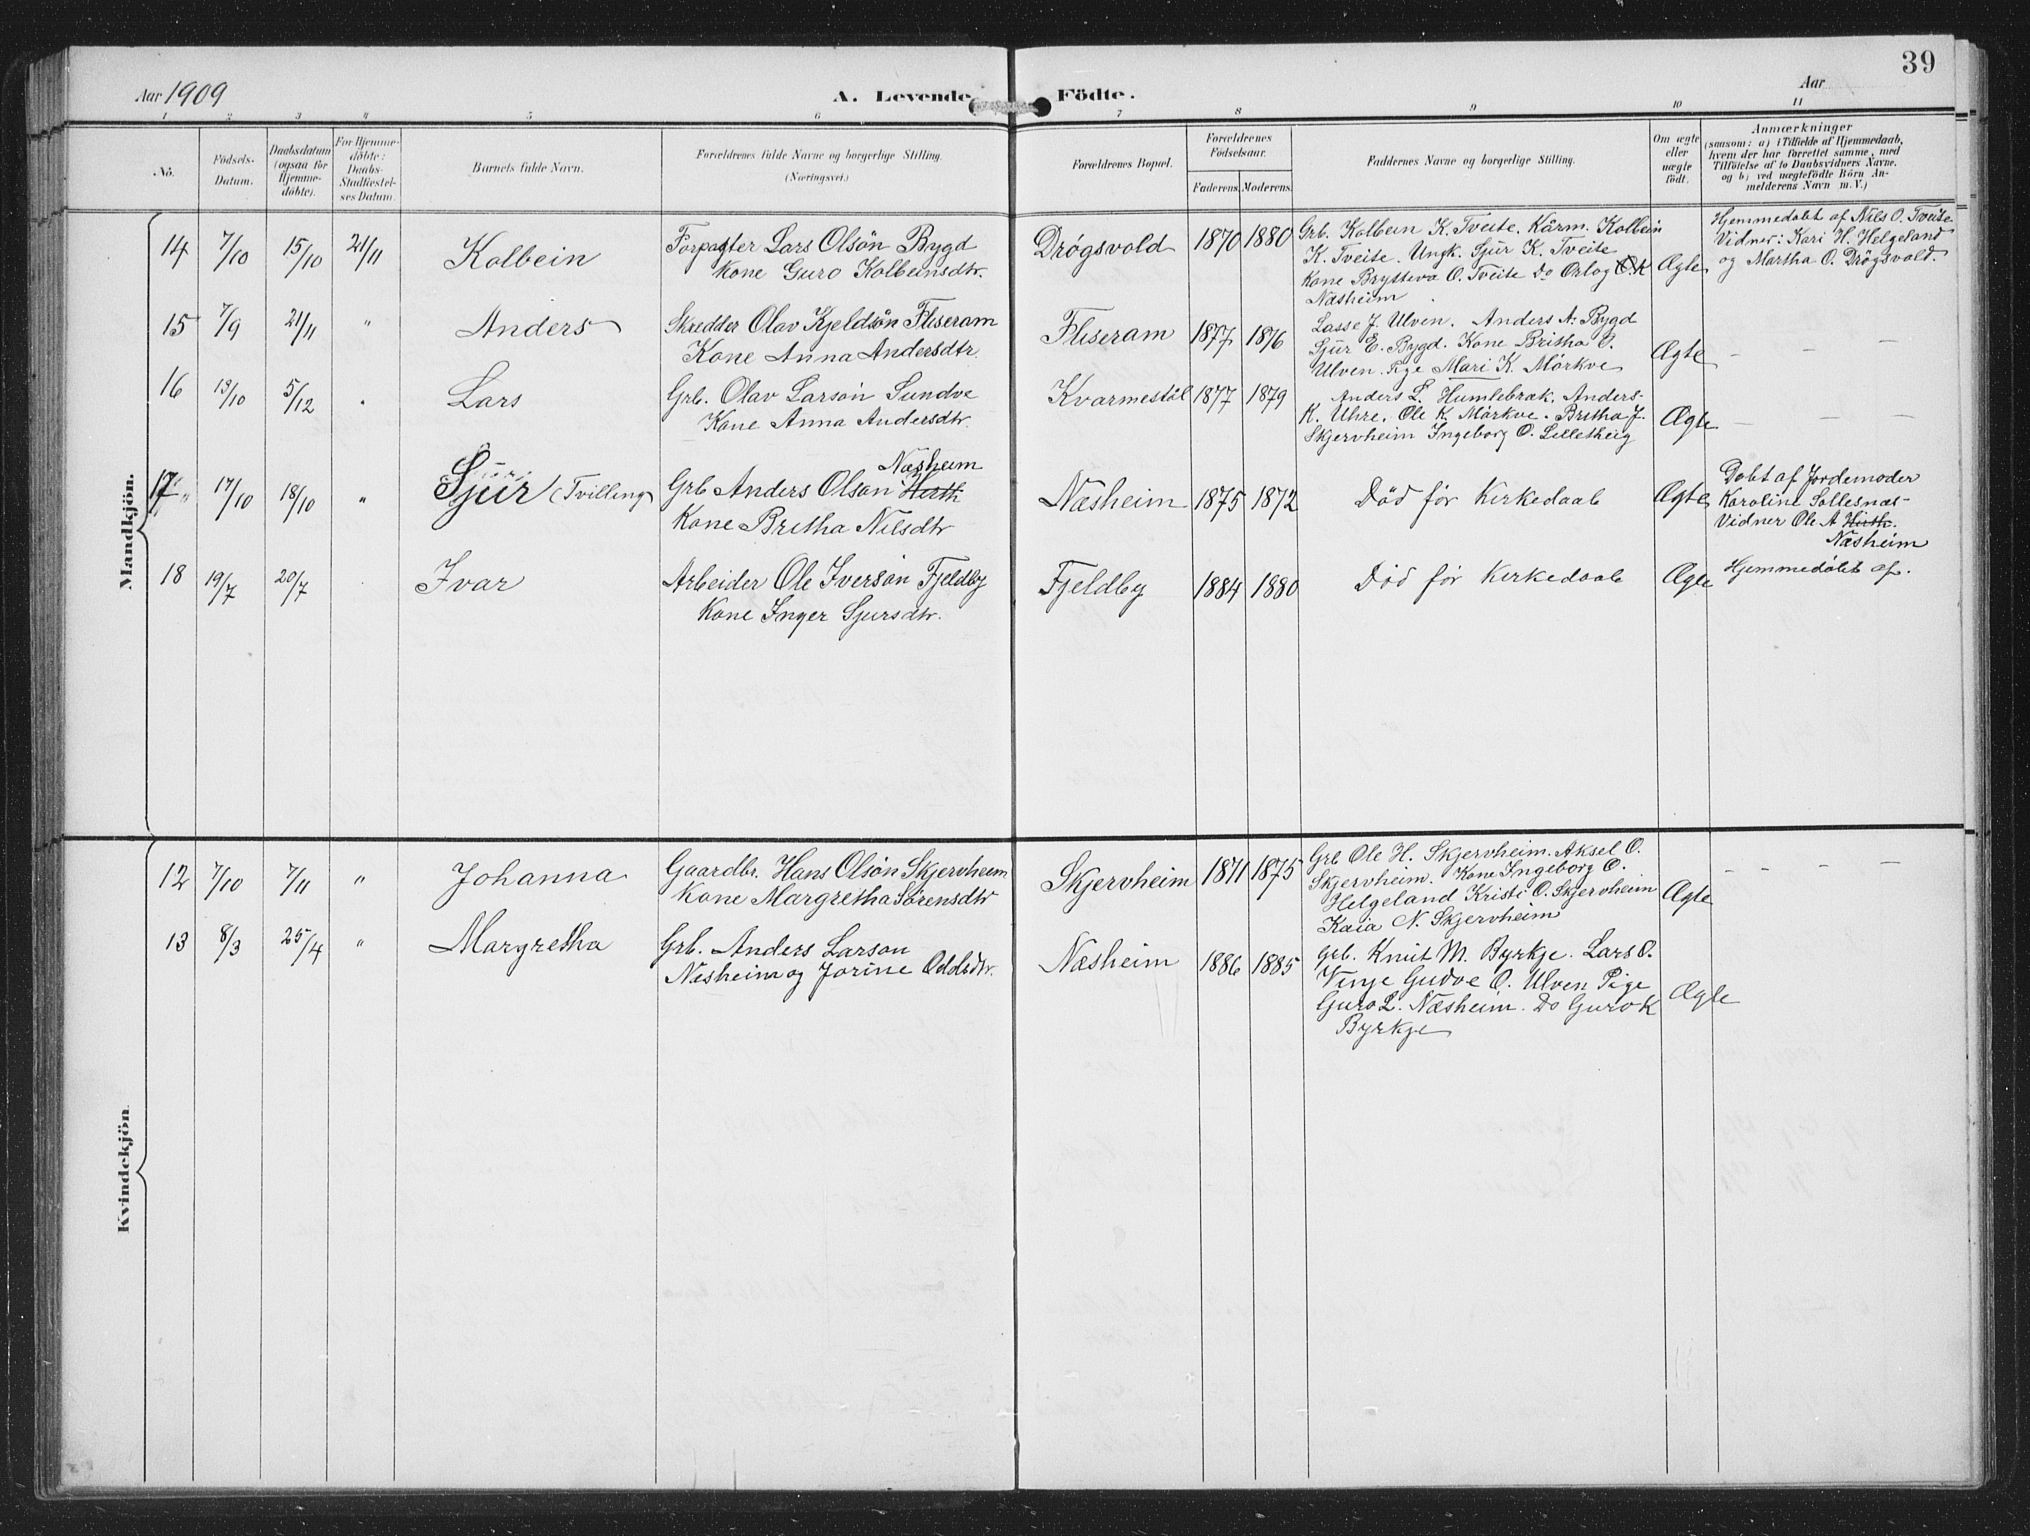 39
Aar 1909
A. Levende Födte.
Aar
1 2 3 4 5 6 7 8 9 10 11
No.
Födsels-
Datum.
Daabsdatum
(ogsaa for
Hjemme-
döbte).
For Hjemme-
döbte:
Daabs-
Stadfæstel-
ses Datum.
Barnets fulde Navn.
Forældrenes fulde Navne og borgerlige Stilling.
(Næringsvei.)
Forældrenes Bopæl.
Forældrenes
Födselsaar.
Faderens. Moderens.
Faddernes Navne og borgerlige Stilling.
Om ægte
eller
uægte
födt.
Anmærkninger
(saasom: a) i Tilfælde af Hjemmedaab,
hvem der har forrettet samme, med
Tilföielse af to Daabsvidners Navne.
og b) ved uægtefödte Börn An-
melderens Navn m. V.)
Mandkjön.
14 7/10 15/10 21/11 Kolbein
Forpagter Lars Olsön Bygd
Kone Guro Kolbeinsdtr.
Drøgsvold 1870 1880
Grb. Kolbein K. Tveite. Kårm. Kolbein
K. Tveite. Ungk. Sjur K. Tveite
Kone Brytteva O. Tveite Do Orlog O K
Næsheim
Ægte
Hjemmedøbt af Nils O. Tveite
Vidner: Kari H. Helgeland
og Martha O. Drøgsvold.
15 7/9 21/11 " Anders
Skredder Olav Kjeldsön Fliseram
Kone Anna Andersdtr.
Fliseram 1877 1876
Lasse J. Ulven. Anders A. Bygd
Sjur E. Bygd. Kone Britha O.
Ulven. Pige Mari K. Mörkve
Ægte — — —
16 13/10 5/12 " Lars
Grb. Olav Larsön Sundve
Kone Anna Andersdtr.
Kvarmestöl 1877 1879
Anders L. Humlebræk. Anders
K. Uhre. Ole K. Mörkve. Britha J.
Skjervheim Ingeborg O. Lilletheig
Ægte — — —
17 " 17/10 18/10 " Sjur (Tvilling)
Næsheim
Grb Anders Olson Hirth
Kone Britha Nilsdtr
Næsheim 1875 1872
Død før Kirkedaab
Ægte
Døbt af Jordemoder
Karoline Sollesnæs-
Vidner Ole A Hirth.
Næsheim
18 19/7 20/7 Ivar
Arbeider Ole Iverson Fjeldby
Kone Inger Sjursdtr.
Fjeldby 1884 1880
Død før Kirkedaab
Ægte
Hjemmedøbt af.
Kvindekjön.
12 7/10 7/11 " Johanna
Gaardbr. Hans Olsön Skjervheim
Kone Margretha Sörensdtr
Skjervheim 1871 1875
Grb Ole H. Skjervheim. Aksel O.
Skjervheim. Kone Ingeborg O.
Helgeland Kristi O. Skjervheim
Kaia N. Skjervheim
Ægte — — —
13 8/3 25/4 " Margretha
Grb. Anders Larson
Næsheim og Jorine Oddsdtr.
Næsheim 1886 1885
Grb. Knut M. Byrkje. Lars O.
Vinje Gudve O. Ulven Pige
Guro L. Næsheim. Do Guro K
Byrkje
Ægte